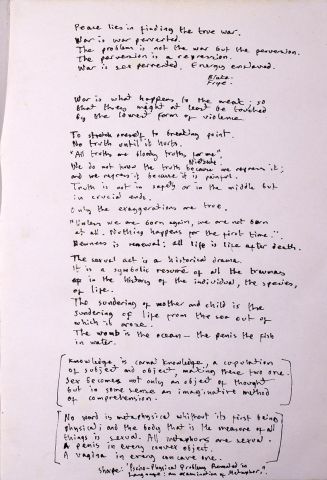 Peace lies in finding the true war.
War is war perverted.
The problem is not the war but the perversion.
The perversion is a repression.
War is sex perverted. Energy enslaved.
Blake.
Frye.
War is what happens to the meat; so
that they might at least be touched
by the lowest form of violence
To stretch oneself to breaking point.
No truth until it hurts.
"All truths are bloody truths for me".
Nietzsche.
We do not know the truth because we repress it;
and we repress it because it is painful.
Truth is not in safety or in the middle but
in crucial ends.
Only the exaggerations are true.
"Unless we are born again, we are not born
at all. Nothing happens for the first time."
Newness is renewal; all life is life after death.
The sexual act is a historical drama.
It is a symbolic resumé of all the traumas
in the history of the individual, the species,
of life.
The sundering of mother and child is the
sundering of life from the sea out of
which it arose.
The womb is the ocean — the penis the fish
in water.
Knowledge, is carnal knowledge, a copulation
of subject and object, making these two one
Sex becomes not only an object of thought
but in some sense an imaginative method
of comprehension.
No word is metaphysical without its first being
physical; and the body that is the measure of all
things is sexual. All metaphors are sexual.
A penis in every convex object.
A vagina in every concave one.
Sharpe: "Psycho-Physical Problems Revealed in
Language: an examination of Metaphor."